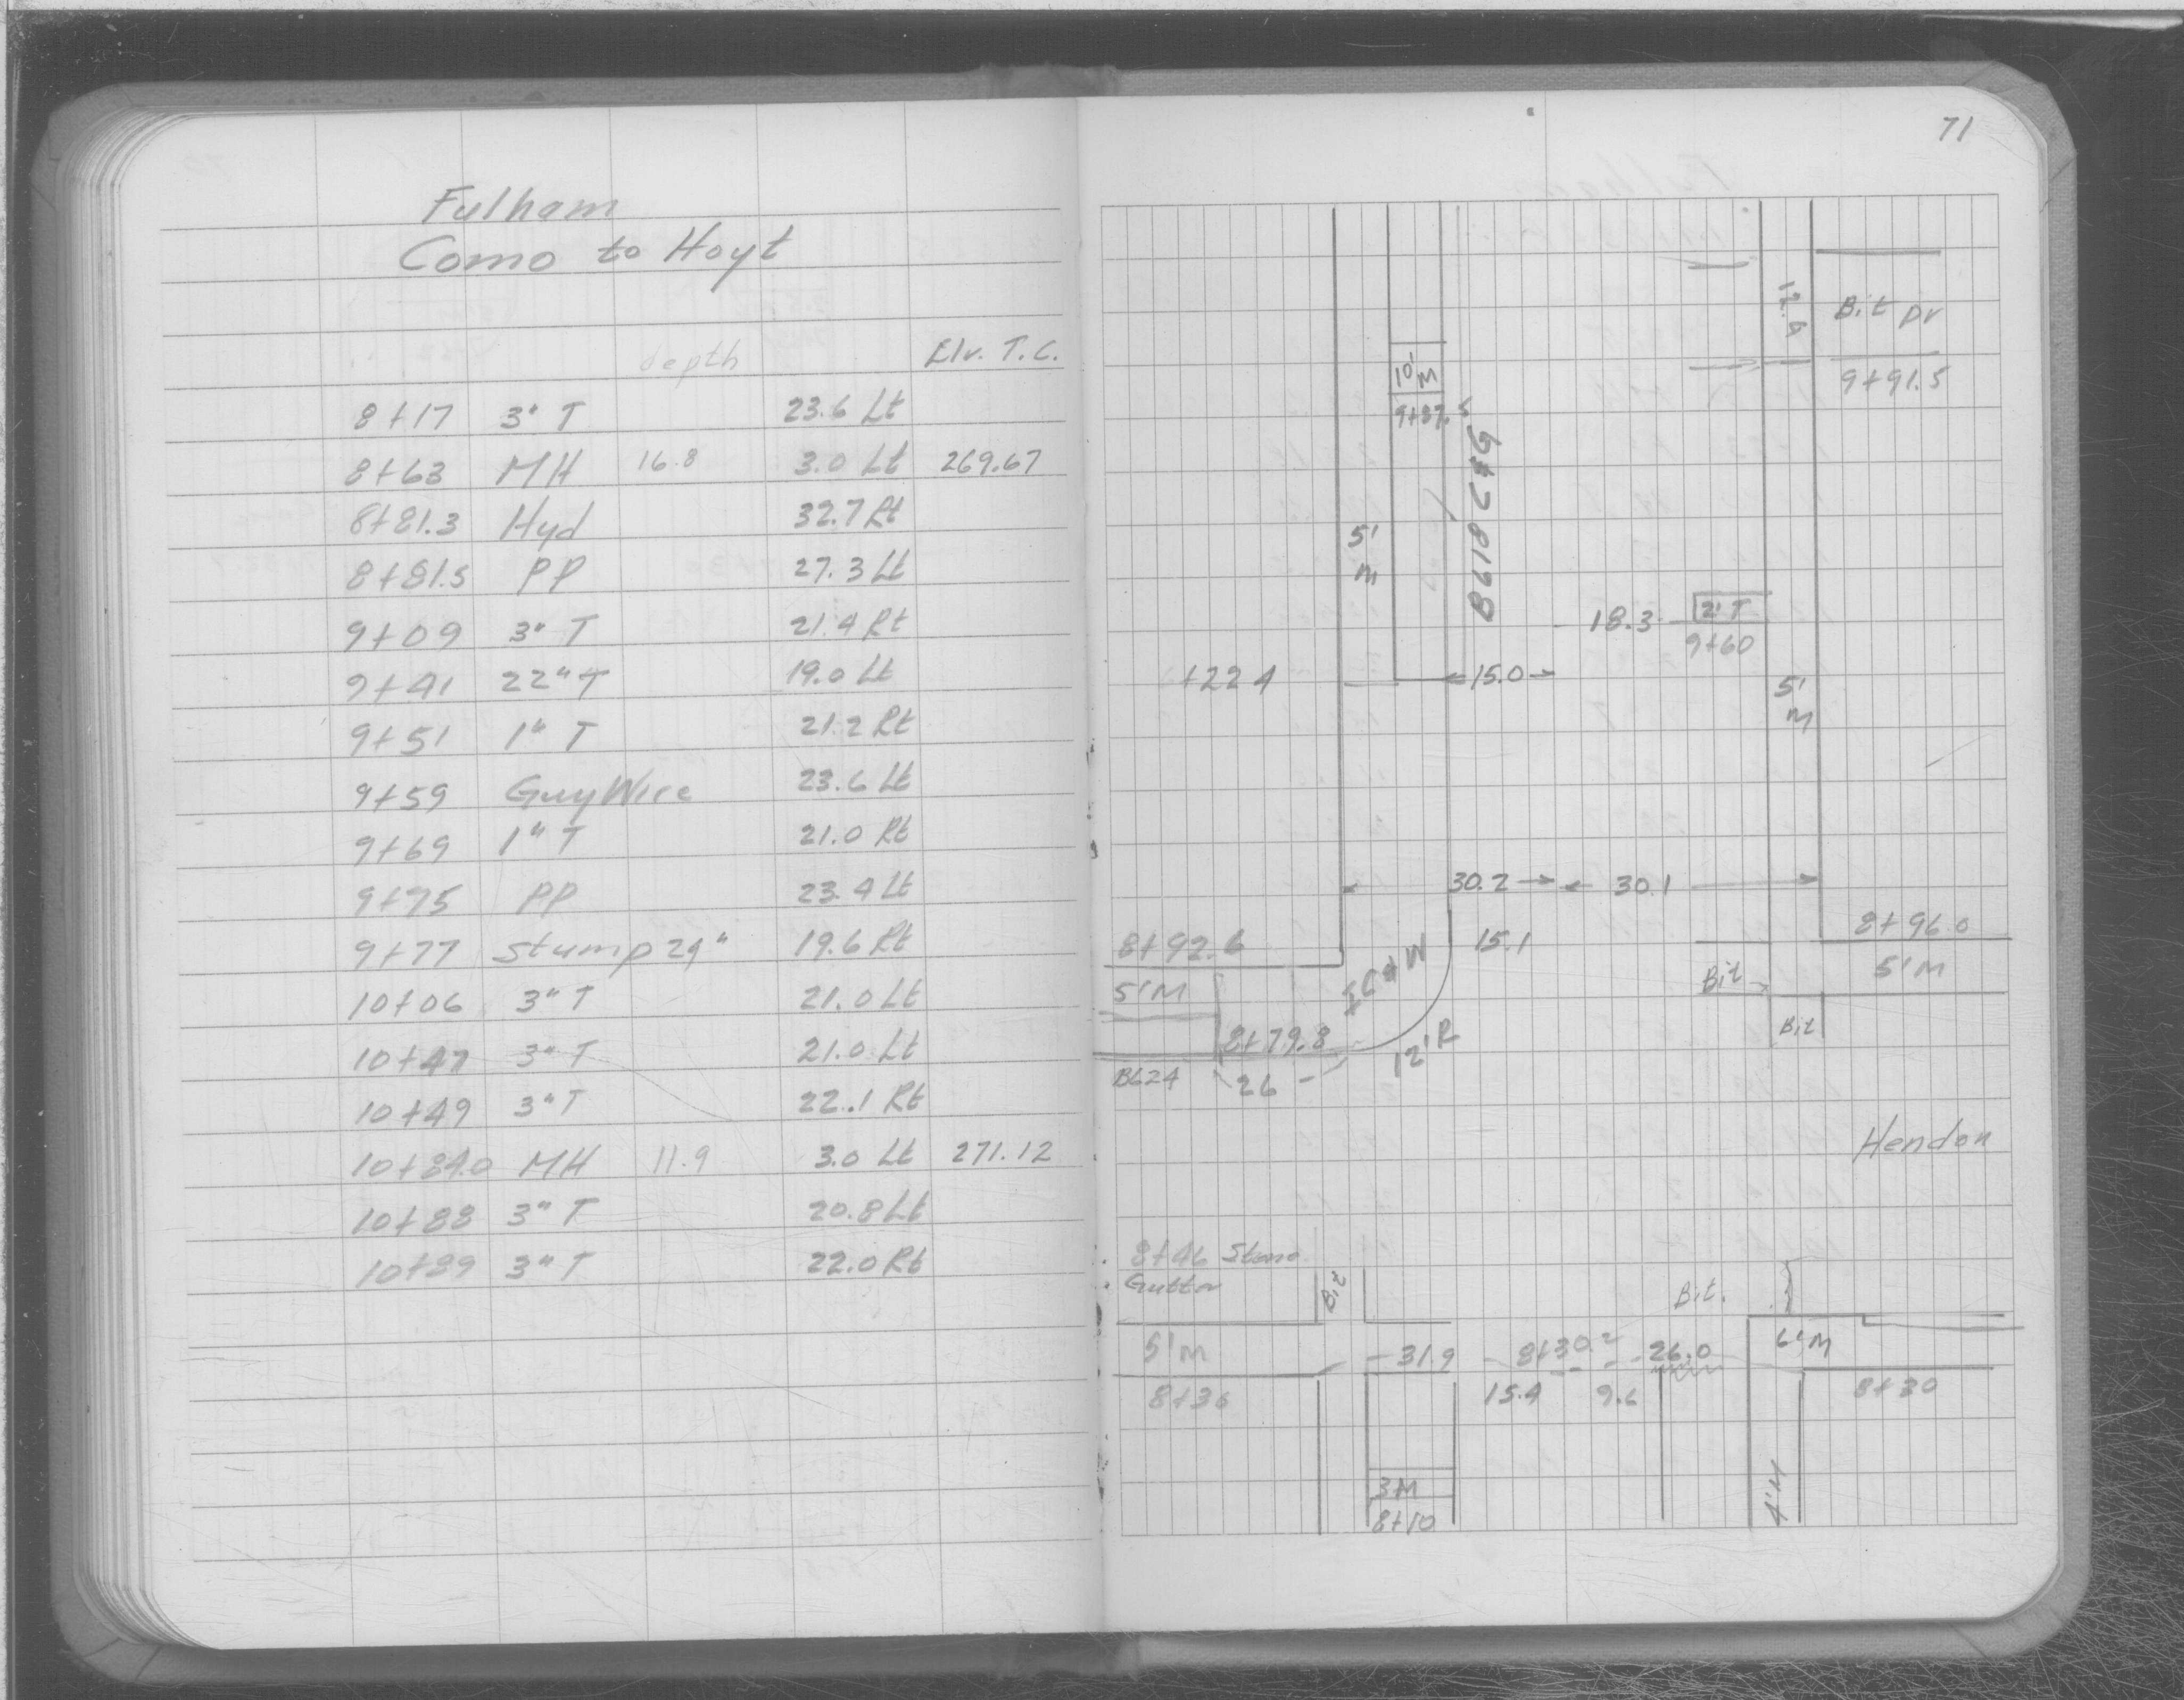 Fulham
Como to Hoyt
depth Elv. T.C.
8+17 3" T 23.6 Lt
8+63 MH 16.8 3.0 Lt 269.67
8+81.3 Hyd 32.7 Rt
8+81.5 PP 27.3 Lt
9+09 3" T 21.4 Rt
9+41 22" T 19.0 Lt
9+51 1" T 21.2 Rt
9+59 Guy Wire 23.6 Lt
9+69 1" T 21.0 Rt
9+75 PP 23.4 Lt
9+77 Stump 24" 19.6 Rt
10+06 3" T 21.0 Lt
10+47 3" T 21.0 Lt
10+49 3" T 22.1 Rt
10+84.0 MH 11.9 3.0 Lt 271.12
10+88 3" T 20.8 Lt
10+89 3" T 22.0 Rt
71
12.0
Bit Dr
9+91.5
10'
M
9+87.5
B618 C&G
5'
M
18.3 2' T
9+60
+22.4
15.0
5'
M
30.2 30.1
8+92.6
15.1
8+96.0
5'M
5'M
Bit
Bit
8+79.8
12'R
B624
26
Hendon
8+46 Stone
Gutter
Bit
Bit.
5'M
31.9
8+30.2
26.0
6'M
8+36
15.4
9.6
8+30
3M
8+10
4'M